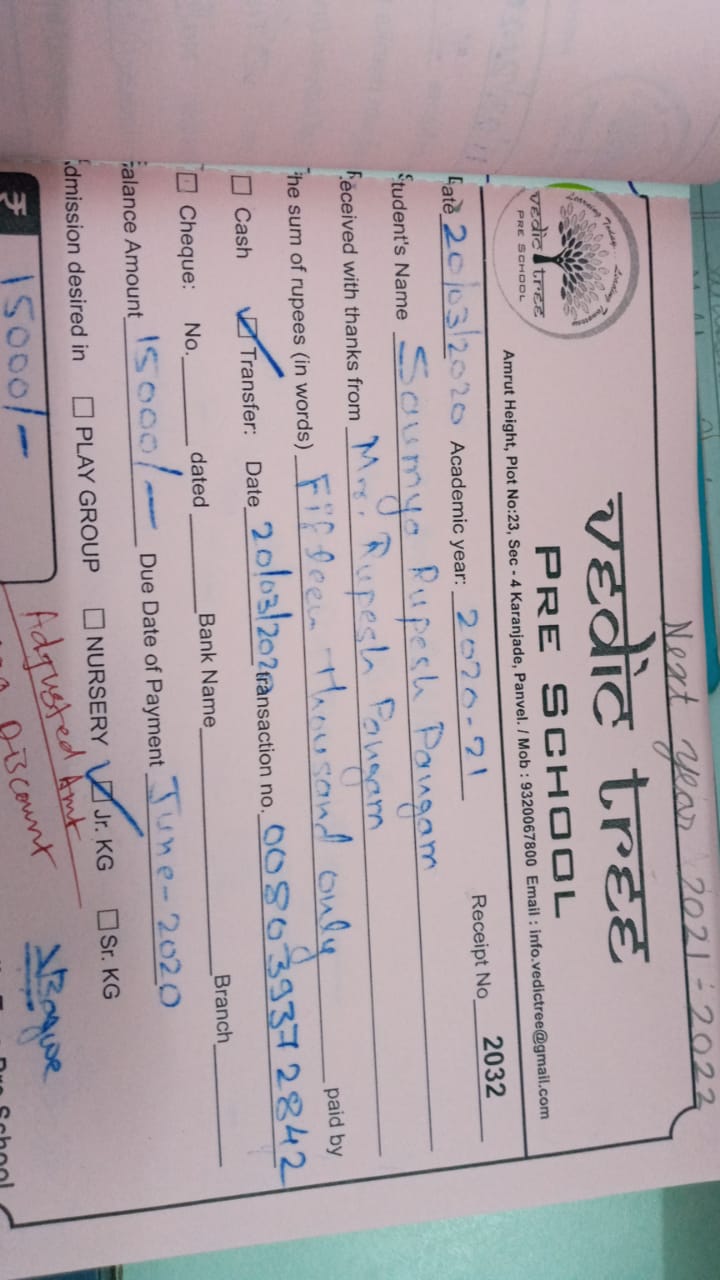 Next year 2021-2022
vedic tree
PRE SCHOOL
vedic tree
PRE SCHOOL
Amrut Height, Plot No:23, Sec - 4 Karanjade, Panvel. / Mob : 9320067800 Email : info.vedictree@gmail.com
Date 20/03/2020 Academic year: 2020-21 Receipt No 2032
Student's Name Saumya Rupesh Pangam
Received with thanks from Mr. Rupesh Pangam
The sum of rupees (in words) Fifteen thousand only paid by
Cash Transfer: Date 20/03/2020 transaction no. 008093937 2842
Cheque: No. dated Bank Name Branch
Balance Amount 15000/- Due Date of Payment June-2020
Admission desired in PLAY GROUP NURSERY Jr. KG Sr. KG
₹ 15000/-
Adjusted Amt
Discount